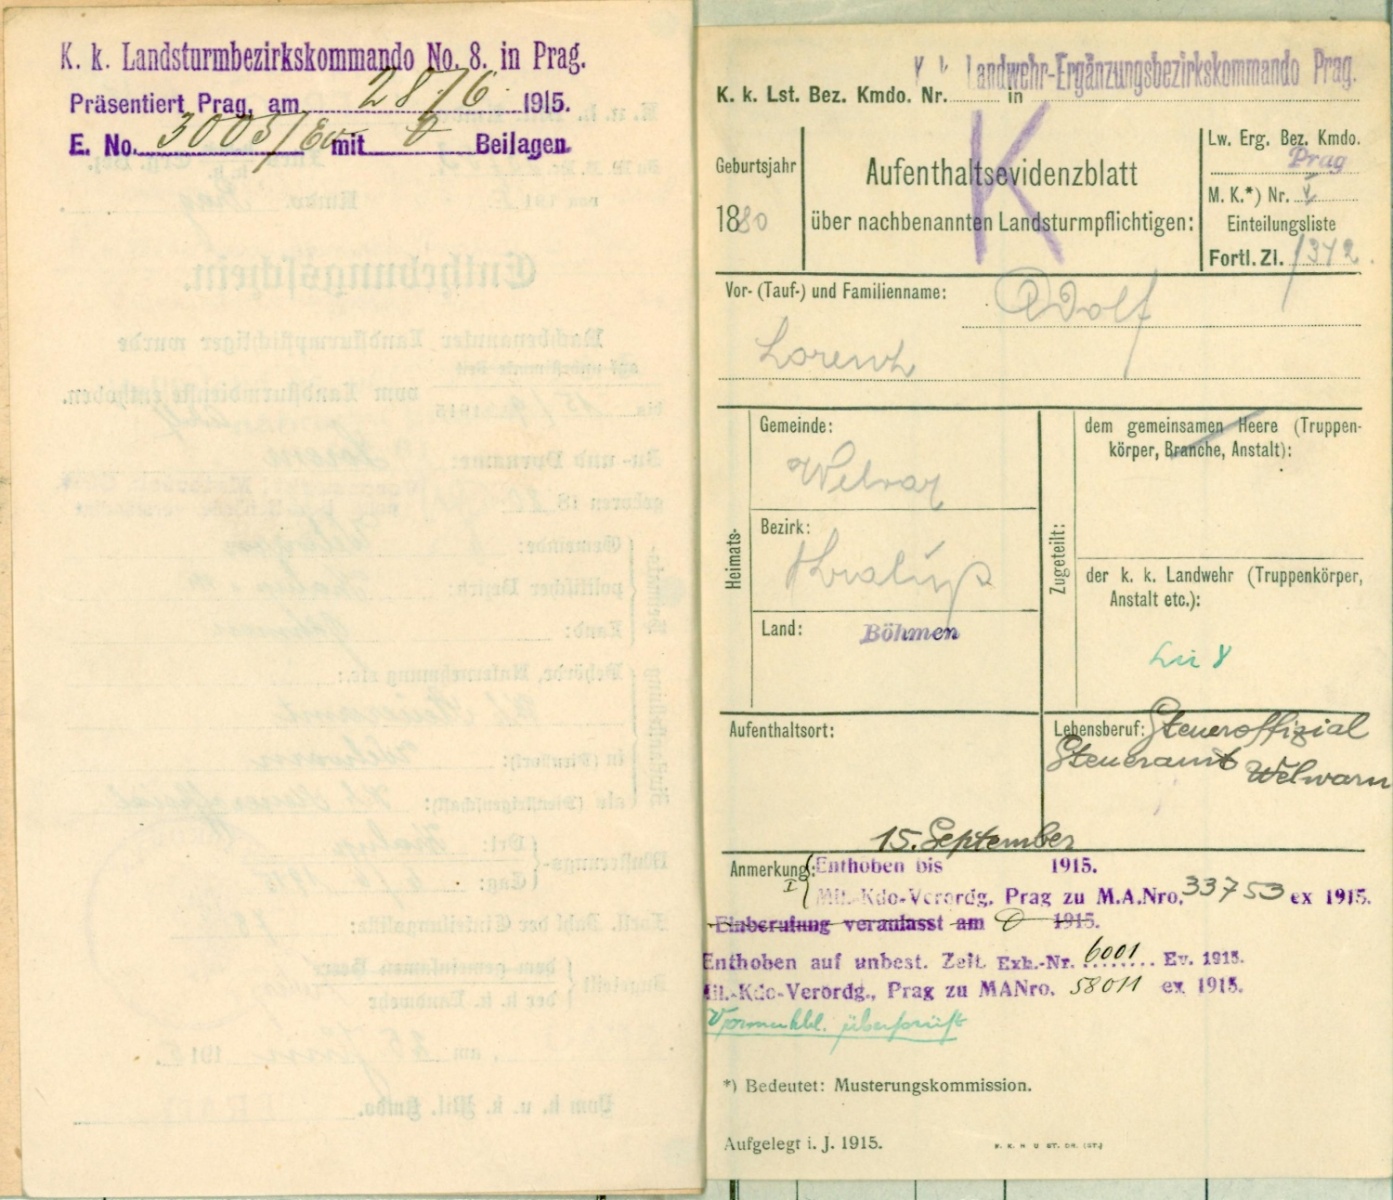 K. k. Landsturmbezirkskommando No. 8. in Prag.
Präsentiert Prag, am 28/6. 1915.
E. No. 3005/Ev mit 0 Beilagen
K. k. Landwehr-Ergänzungsbezirkskommando Prag.
K. k. Lst. Bez. Kmdo. Nr. in
K
Geburtsjahr
1880
Aufenthaltsevidenzblatt
über nachbenannten Landsturmpflichtigen:
Lw. Erg. Bez. Kmdo.
Prag
M. K.*) Nr.
Einteilungsliste
Fortl. Zl. 1342.
Vor- (Tauf-) und Familienname: Adolf
Lorenz
Heimats-
Gemeinde:
Welvar
Bezirk:
Kralup
Land: Böhmen
Zugeteilt:
dem gemeinsamen Heere (Truppen-
körper, Branche, Anstalt):
der k. k. Landwehr (Truppenkörper,
Anstalt etc.):
Lir 8
Aufenthaltsort:
Lebensberuf: Steueroffizial
Steueramt Welwarn
15. September
Anmerkung: Enthoben bis 1915.
I Mil.-Kdo-Verordg. Prag zu M.A.Nro. 33753 ex 1915.
Einberufung veranlasst am 0 1915.
Enthoben auf unbest. Zeit. Exh.-Nr. 6001 Ev. 1915.
Mil.-Kdo-Verordg., Prag zu MANro. 58011 ex 1915.
Vormerkbl. überprüft
*) Bedeutet: Musterungskommission.
Aufgelegt i. J. 1915.